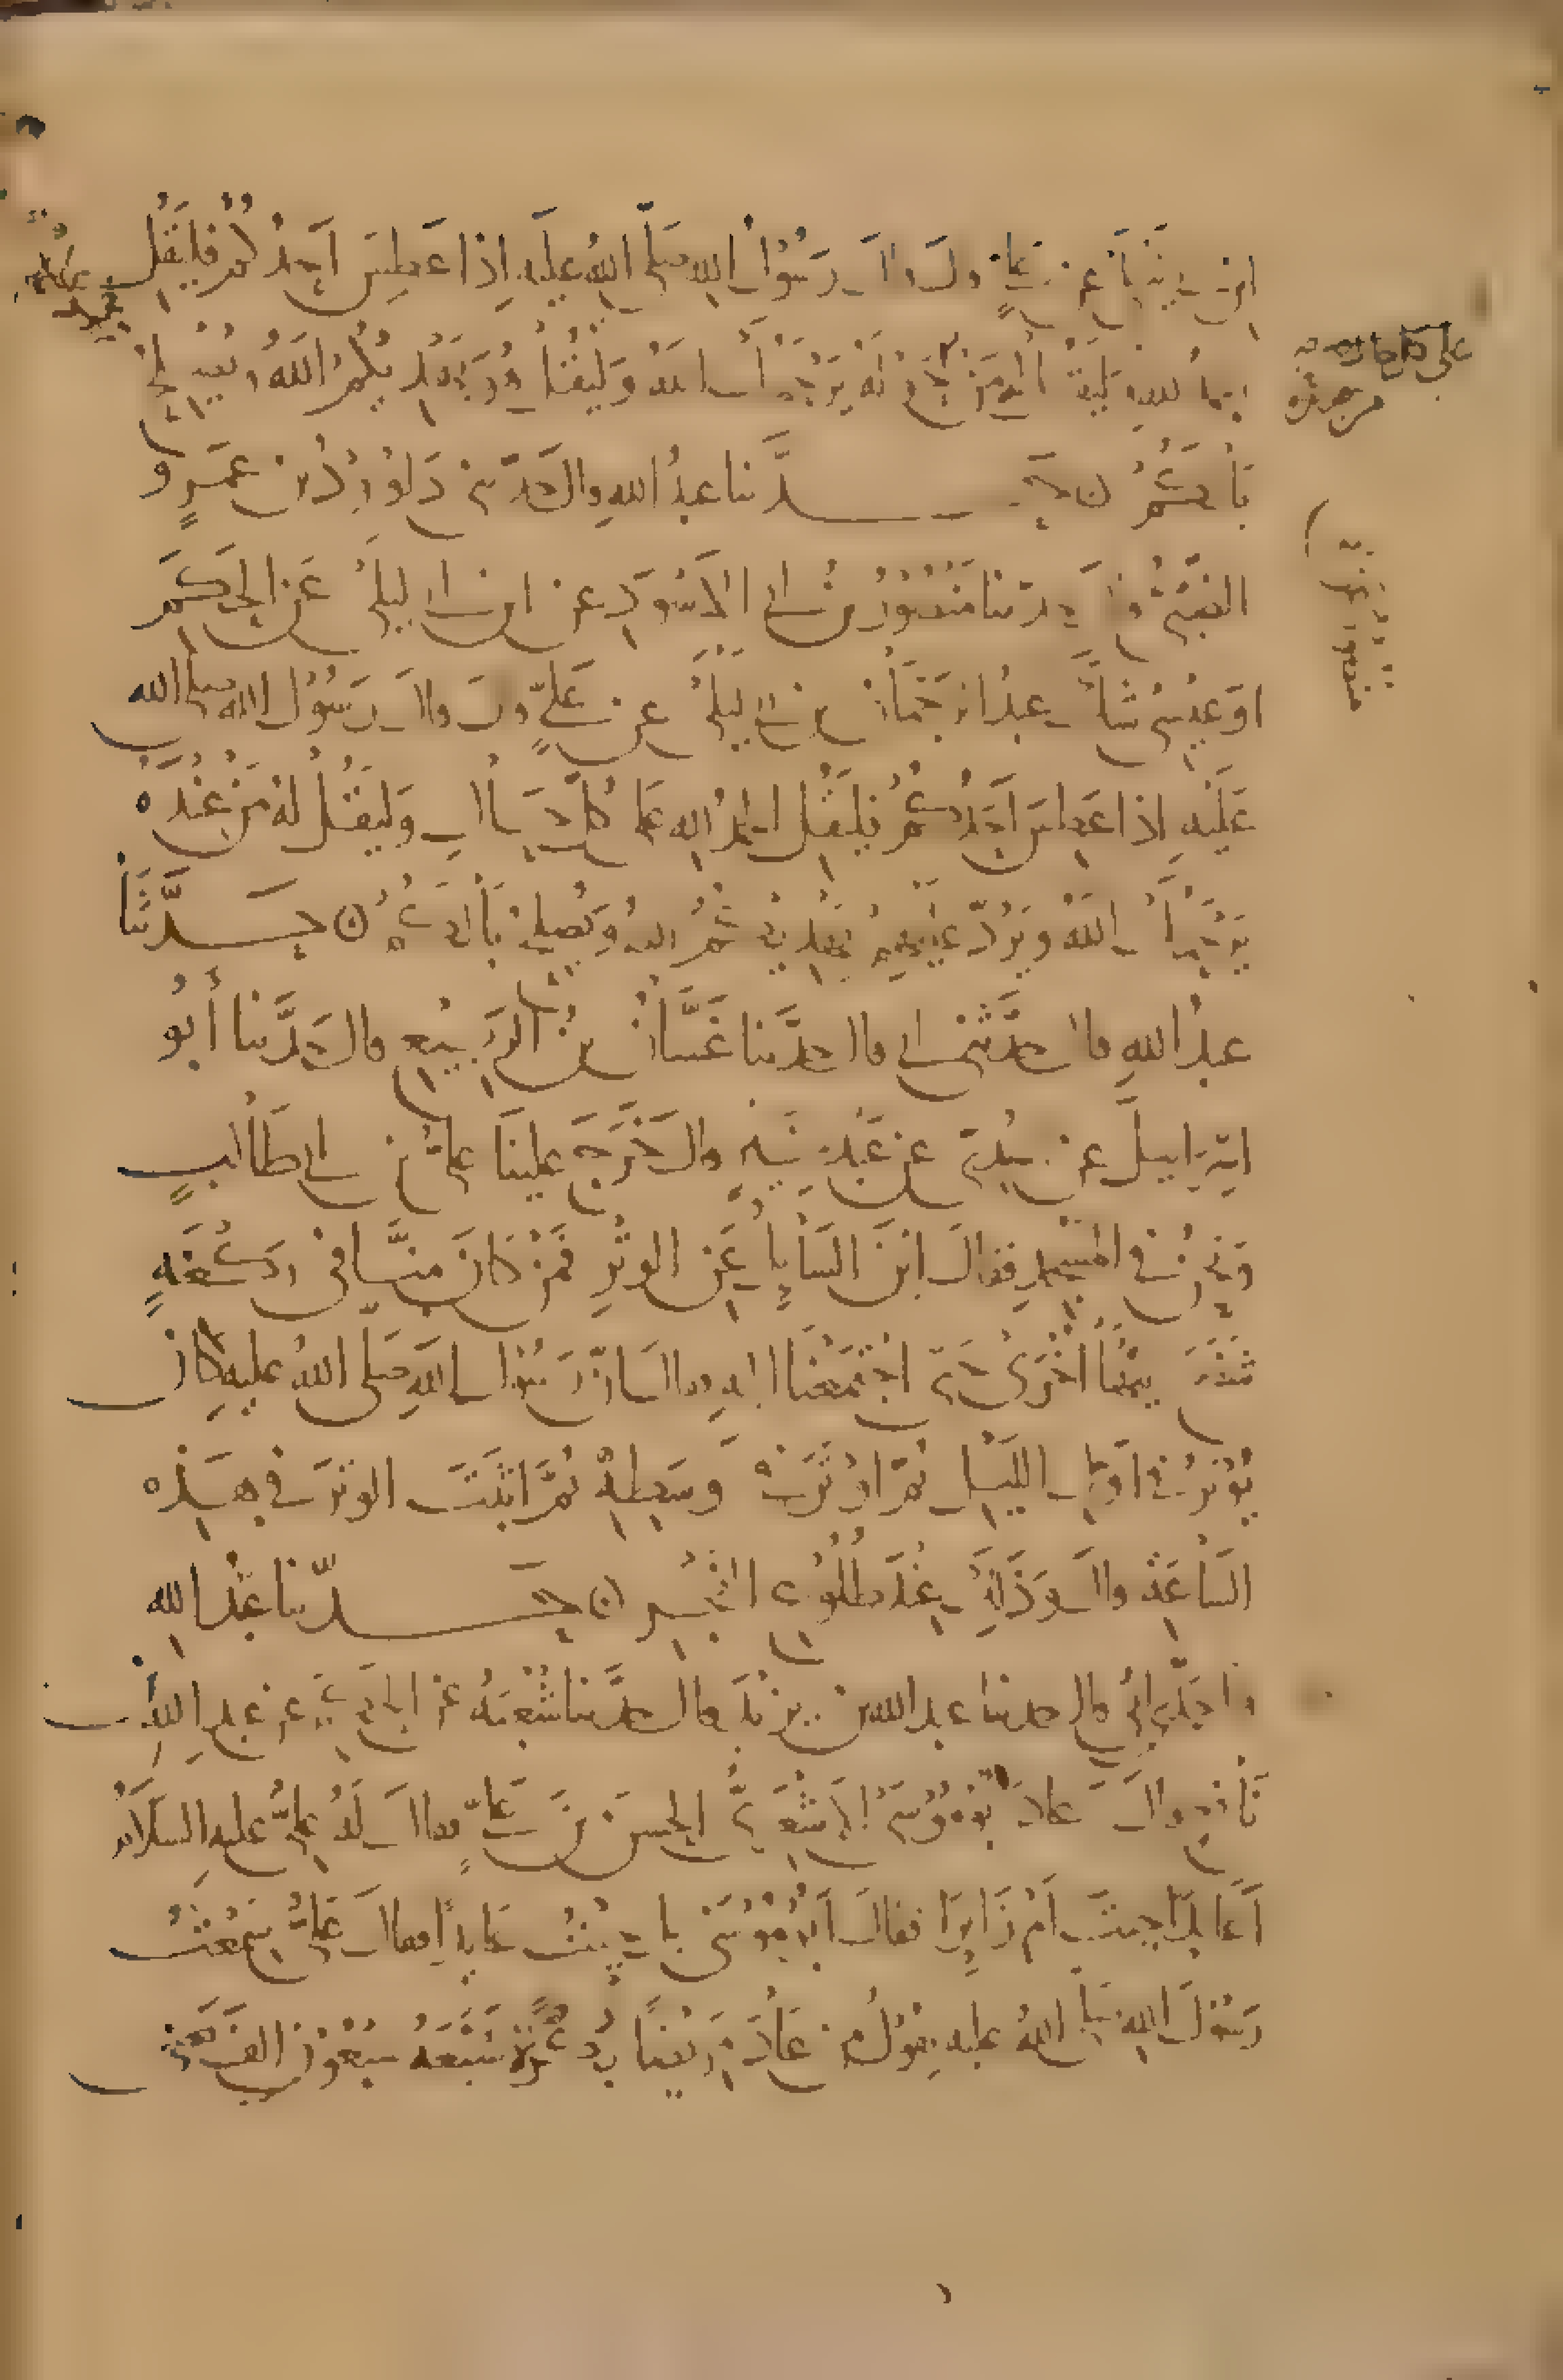 ابن أبي ليلى عن علي قال قال رسول الله صلى الله عليه إذا عطس أحدكم فليقل
الحمد لله وليقل له من حوله يرحمك الله وليقل هو يهديكم الله ويصلح
بالكم ن حدثنا عبد الله قال حدثني داود بن عمرو
الضبي قال حدثنا منصور بن أبي الأسود عن ابن أبي ليلى عن الحكم
أو عيسى شك عبد الرحمن بن أبي ليلى عن علي قال قال رسول الله صلى الله
عليه إذا عطس أحدكم فليقل الحمد لله على كل حال وليقل له من عنده
يرحمك الله ويرد عليهم يهديكم الله ويصلح بالكم ن حدثنا
عبد الله قال حدثني أبي قال حدثنا غسان بن الربيع قال حدثنا أبو
إسرائيل عن السدي عن عبد خير قال خرج علينا علي بن أبي طالب
ونحن في المسجد فقال أين السائل عن الوتر فمن كان منا في ركعة
شفع إليها أخرى حتى اجتمعنا إليه فقال إن رسول الله صلى الله عليه كان
يوتر في أول الليل ثم أوتر في وسطه ثم أثبت الوتر في هذه
الساعة قال وذلك عند طلوع الفجر ن حدثنا عبد الله
قال حدثني أبي قال حدثنا عبد الله بن يزيد قال حدثنا شعبة عن الحكم عن عبد الله بن
نافع قال عاد أبو موسى الأشعري الحسن بن علي فقال له علي عليه السلام
أعائدا جئت أم زائرا فقال أبو موسى بل جئت عائدا فقال علي سمعت
رسول الله صلى الله عليه يقول من عاد مريضا بكرا شيعه سبعون ألف